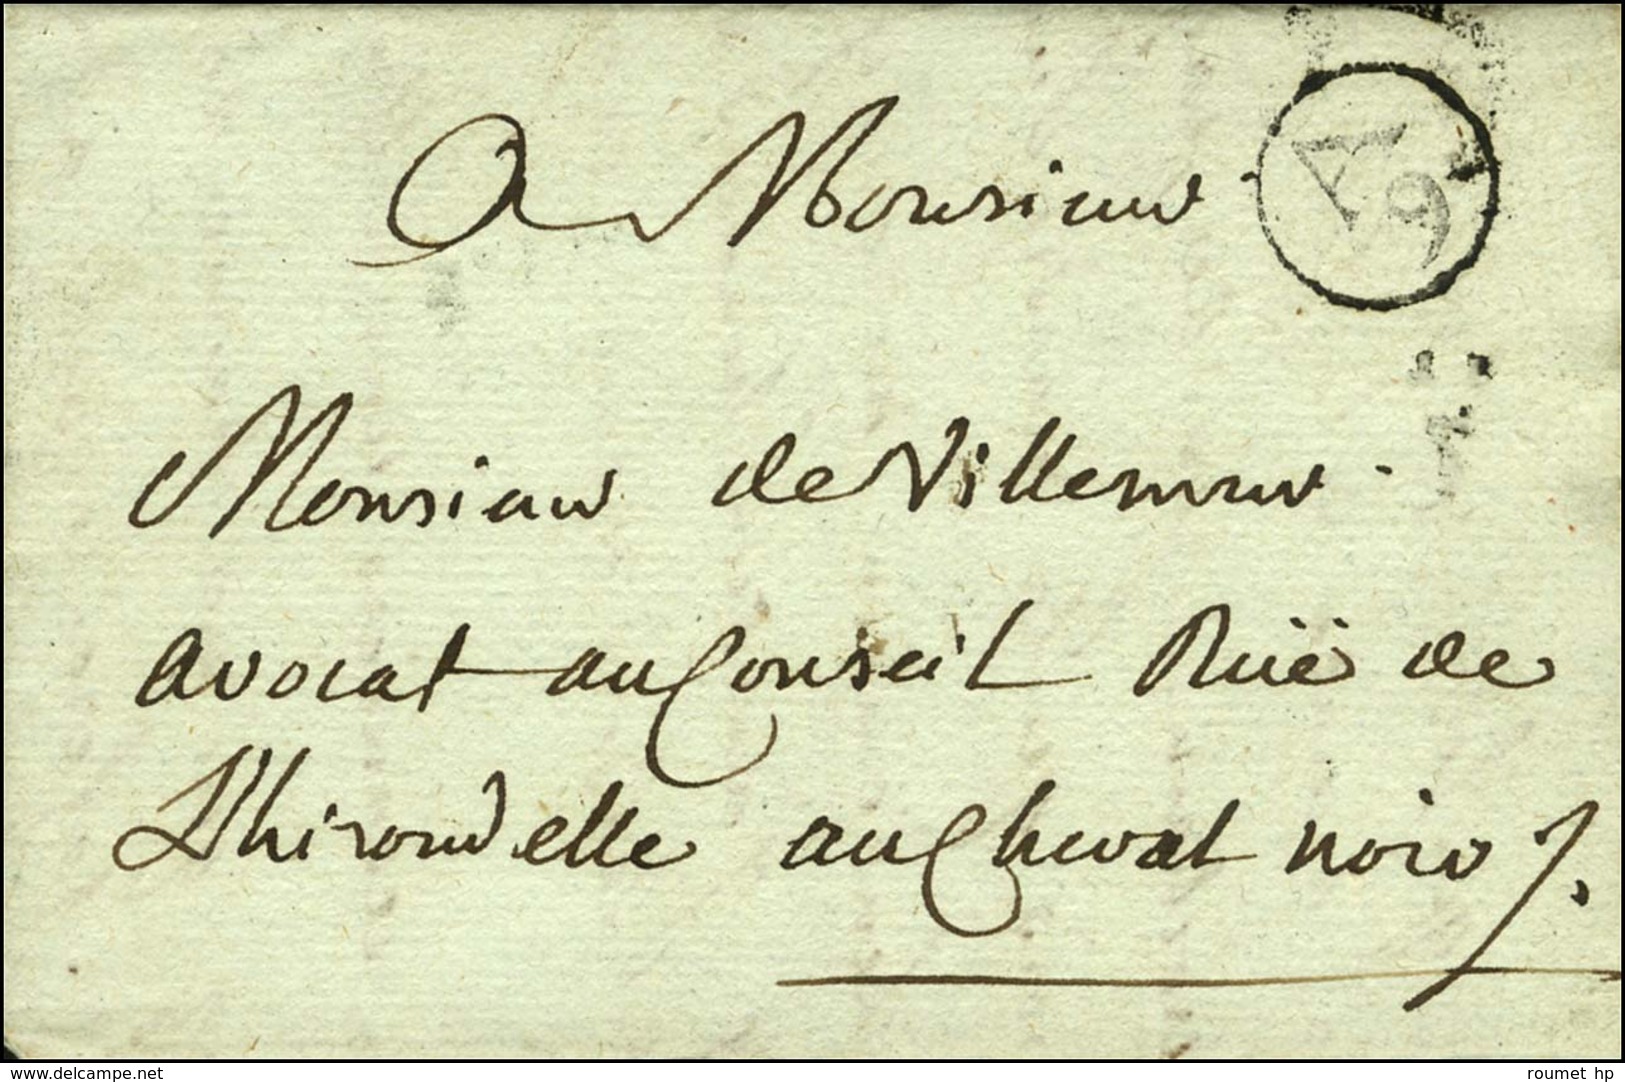 A Monsieur
A
9
Monsieur de Villemur
avocat au Conseil Ruë de
L'hirondelle au Cheval noir /.
www.delcampe.net
roumet hp